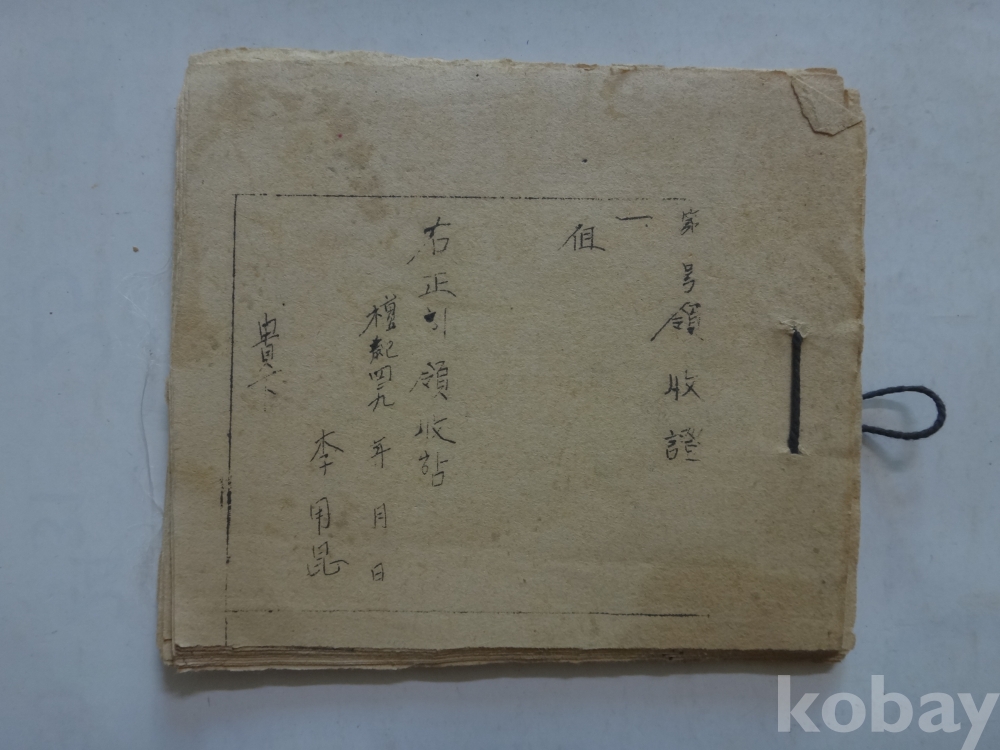 第 号領收證
一.
但
右正히領收함
檀紀四二九 年 月 日
李用
貴下
kobay